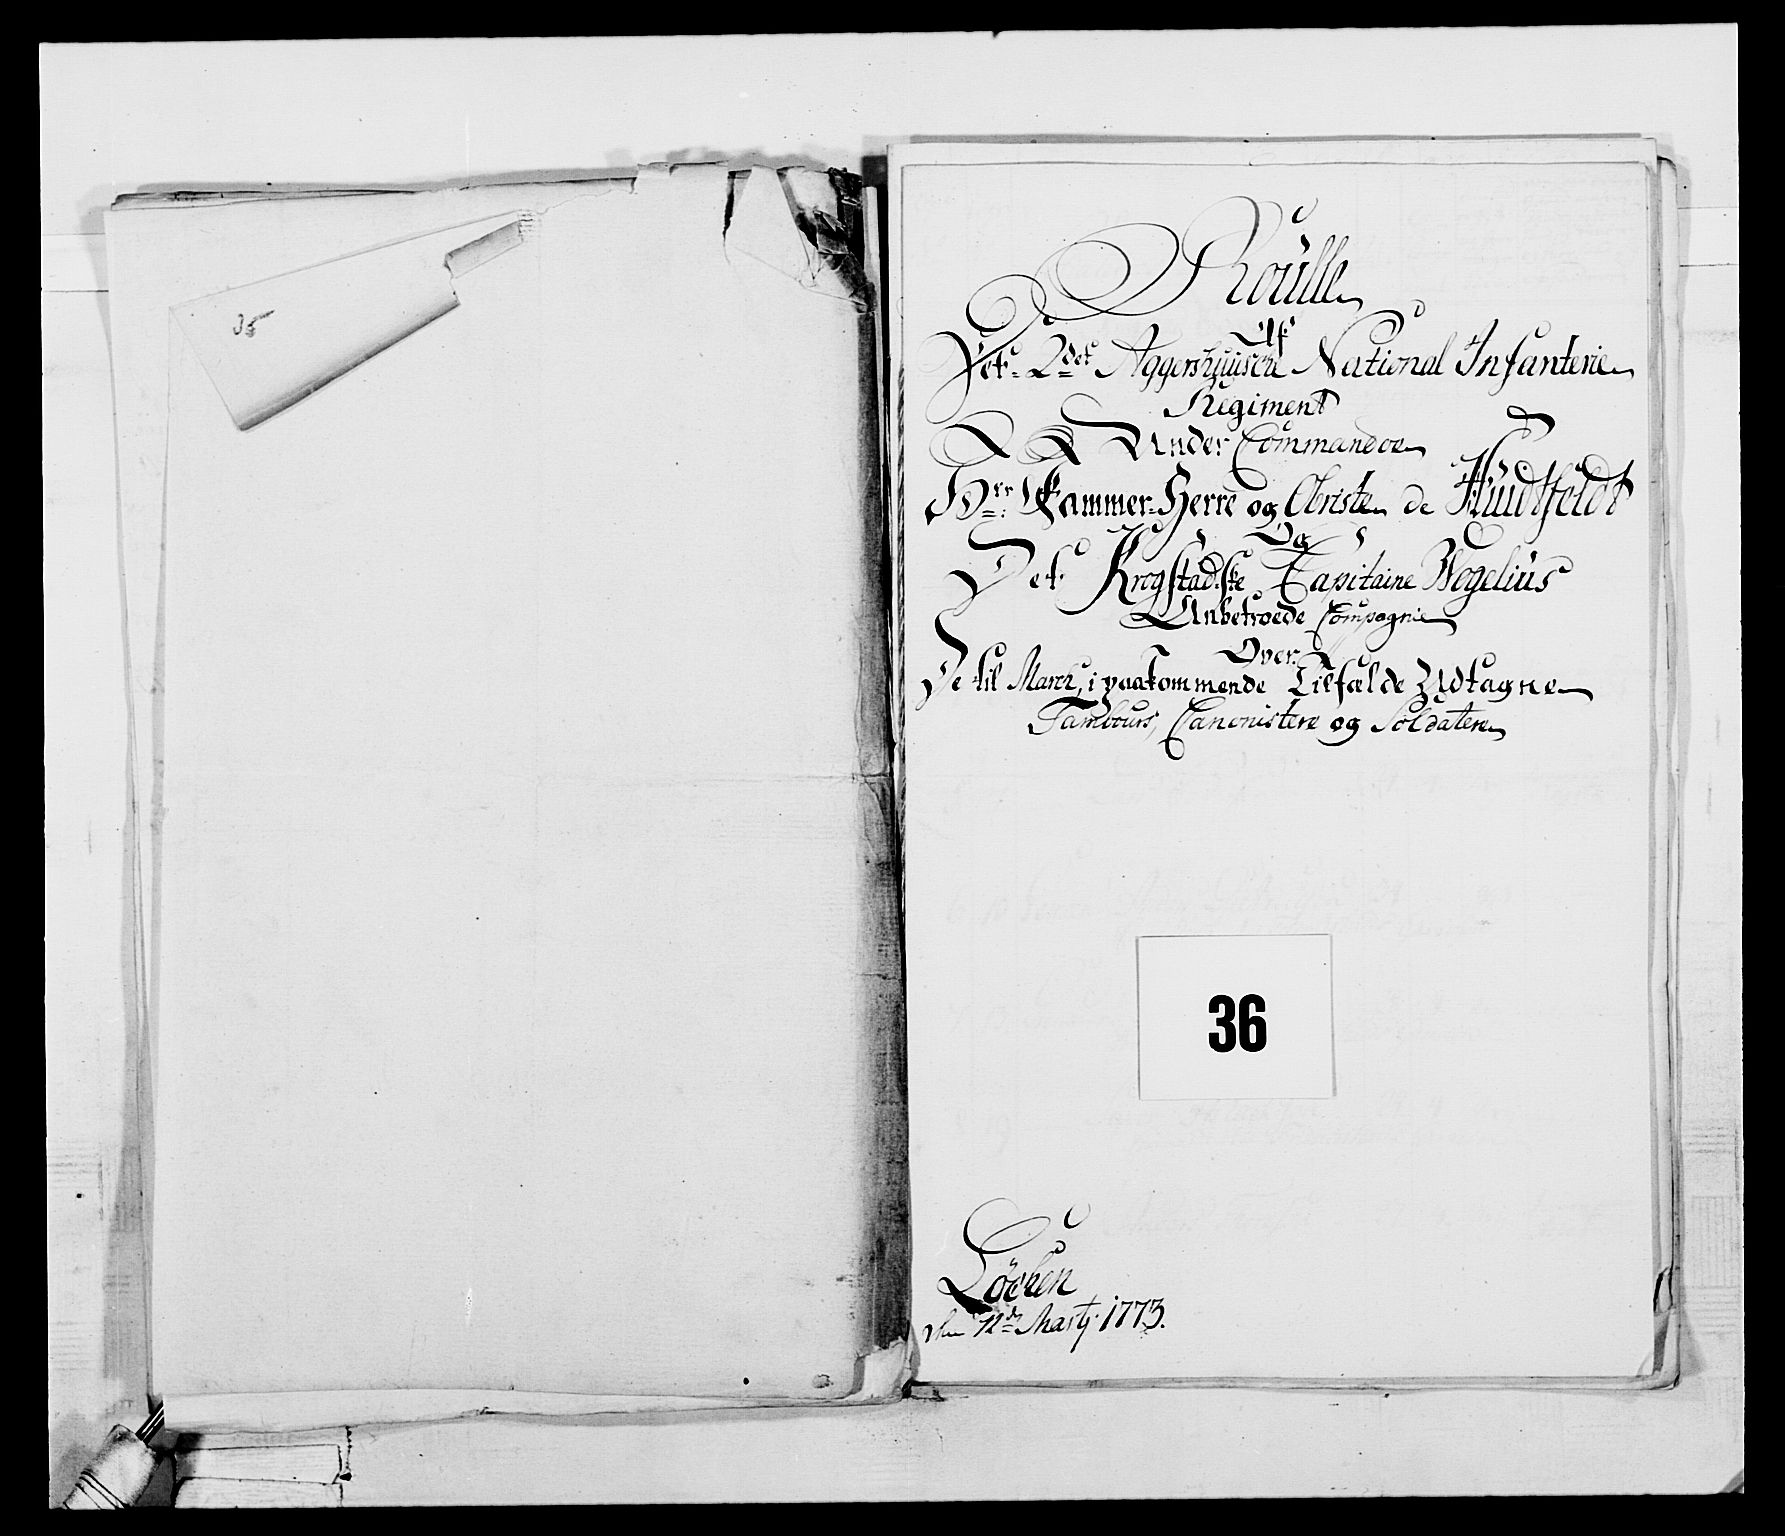 35
Roülle
Af
Det 2det Aggershuusche National Infanterie
Regiment
Under Commandoe
Hrr: Kammer-Herre og Obriste de Hüidtfeldt
Og
Det Krogstadske Capitaine Wegeliüs
Anbetroede Compagnie
Over
De til March, i paakommende Tilfælde Udtagne
Tambours, Canonistere og Soldatere
36
Löchen
den 12te Martj. 1773.